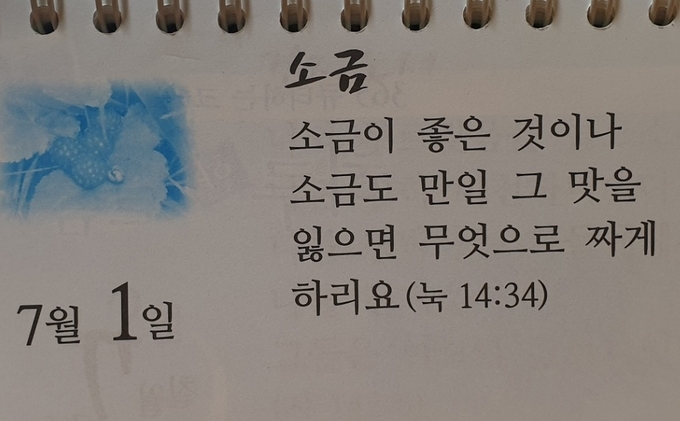 소금
소금이 좋은 것이나
소금도 만일 그 맛을
잃으면 무엇으로 짜게
하리요(눅 14:34)
7월 1일